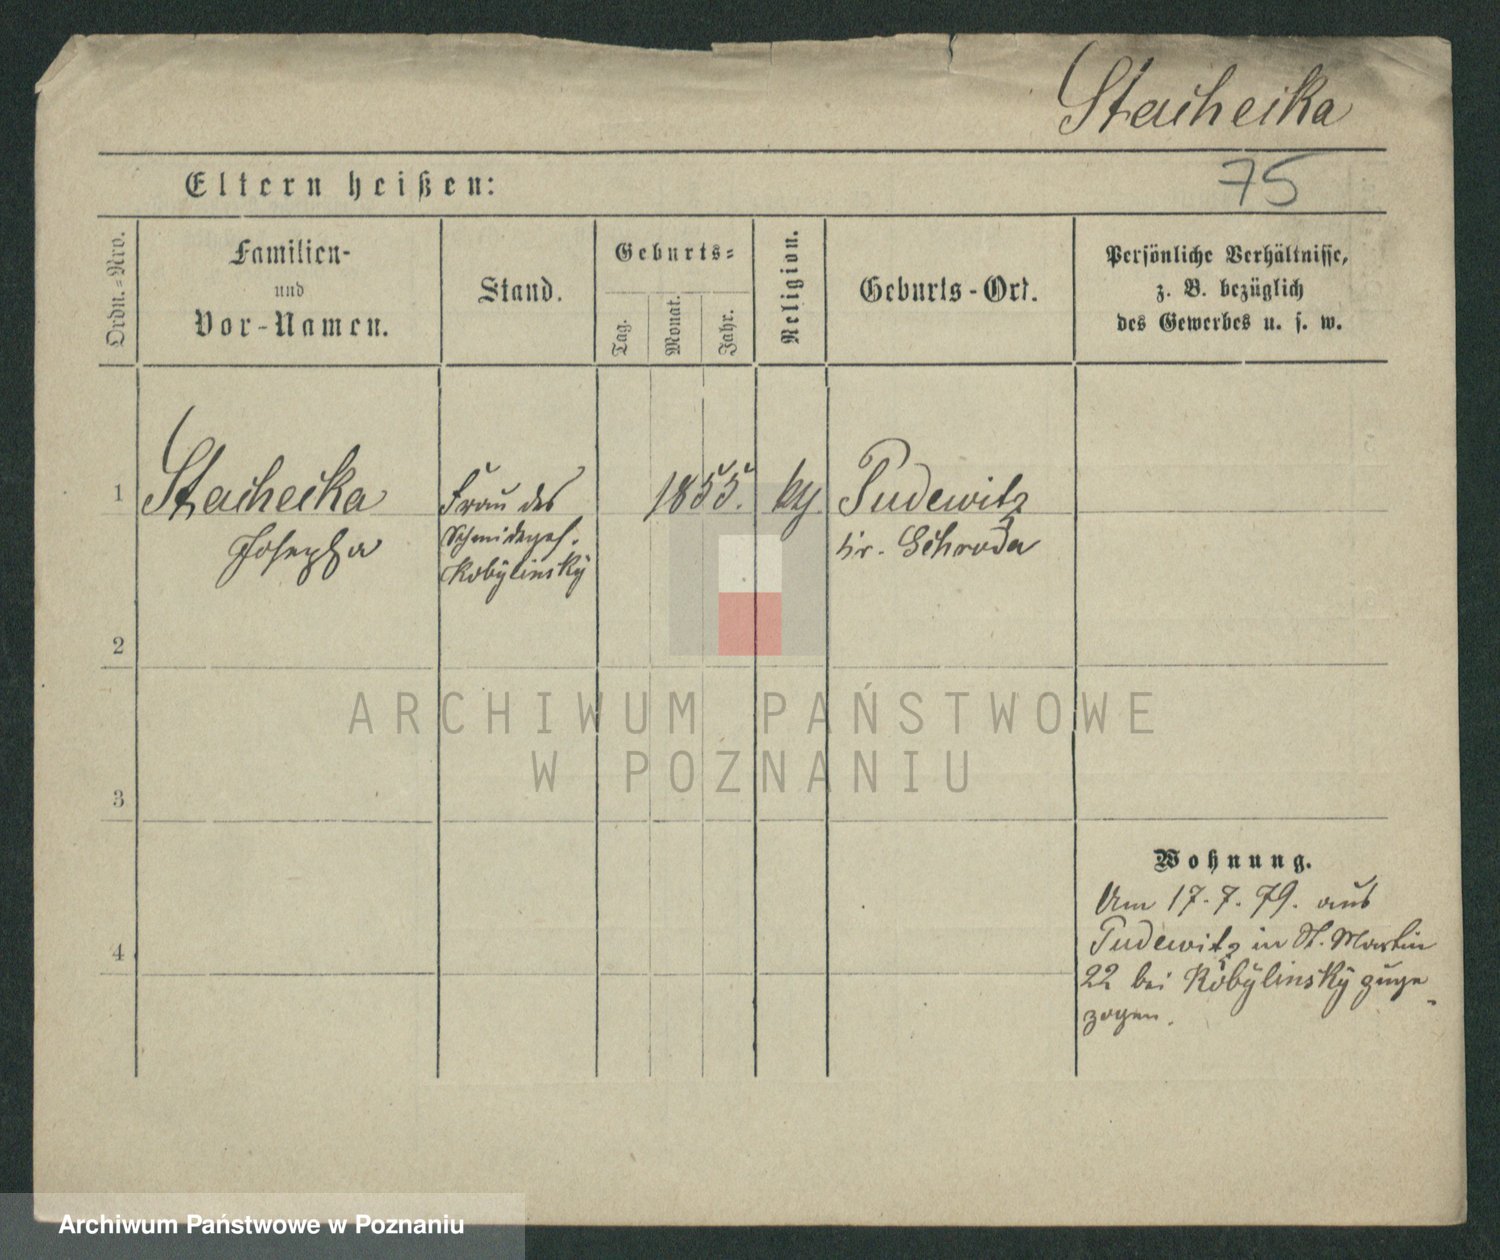 Stacheika
75
Eltern heißen:
Ordn.-Nro.
Familien-
und
Vor-Namen.
Stand.
Geburts-
Tag.
Monat.
Jahr.
Religion.
Geburts-Ort.
Persönliche Verhältnisse,
z. B. bezüglich
des Gewerbes u. s. w.
1
Stacheika
Josepha
Frau des
Schmidegef.
Kobylinsky
1855.
Pudewitz
Kr. Schroda
2
3
4
Wohnung.
Am 17.7.79. aus
Pudewitz in St. Martin
22 bei Kobylinsky zuge-
zogen.
ARCHIWUM PAŃSTWOWE
W POZNANIU
Archiwum Państwowe w Poznaniu